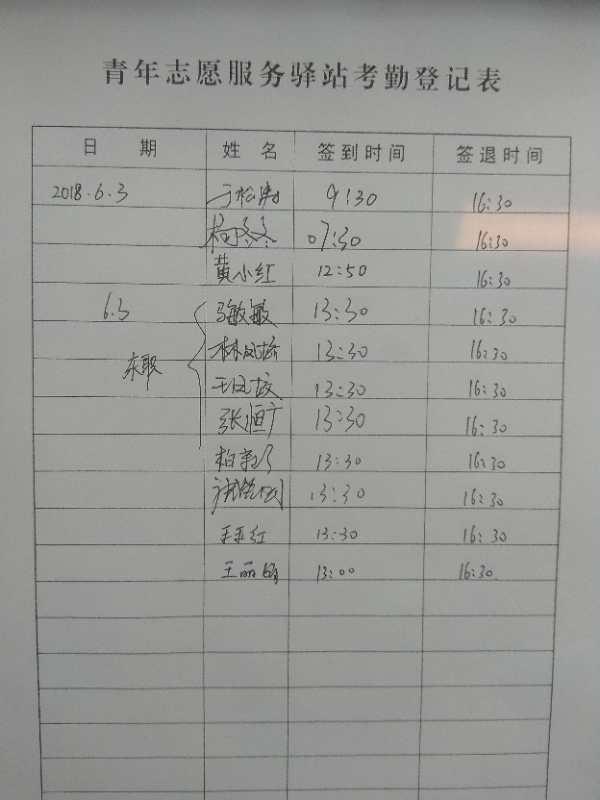 青年志愿服务驿站考勤登记表
日 期 姓 名 签到时间 签退时间
2018.6.3 于松涛 9:30 16:30
杨冬冬 07:30 16:30
黄小红 12:50 16:30
6.3 马敏敏 13:30 16:30
林凤娇 13:30 16:30
东职 王凤姣 13:30 16:30
张恒广 13:30 16:30
13:30 16:30
13:30 16:30
王红 13:30 16:30
王丽 13:00 16:30